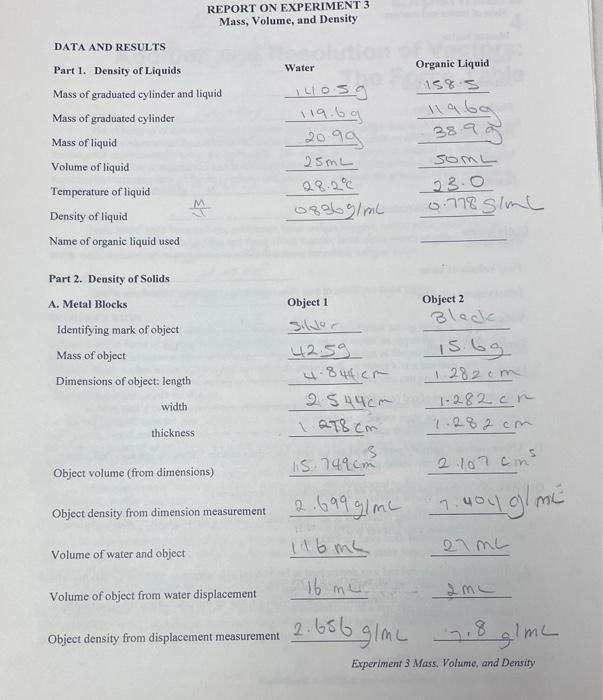 REPORT ON EXPERIMENT 3
Mass, Volume, and Density
DATA AND RESULTS
Part 1. Density of Liquids Water Organic Liquid
Mass of graduated cylinder and liquid 140.5g 158.5
Mass of graduated cylinder 119.6g 119.6g
Mass of liquid 20.9g 38.9g
Volume of liquid 25mL 50mL
Temperature of liquid 28.2°C 23.0
Density of liquid M/V 0836g/mL 0.778g/mL
Name of organic liquid used
Part 2. Density of Solids
A. Metal Blocks Object 1 Object 2
Identifying mark of object Silver Black
Mass of object 42.5g 15.6g
Dimensions of object: length 4.844cm 1.282cm
width 2.544cm 1.282cm
thickness 1.278cm 1.282cm
Object volume (from dimensions) 15.749cm³ 2.107cm³
Object density from dimension measurement 2.699g/mL 7.404g/mL
Volume of water and object 116mL 27mL
Volume of object from water displacement 16mL 2mL
Object density from displacement measurement 2.656g/mL 7.8g/mL
Experiment 3 Mass, Volume, and Density